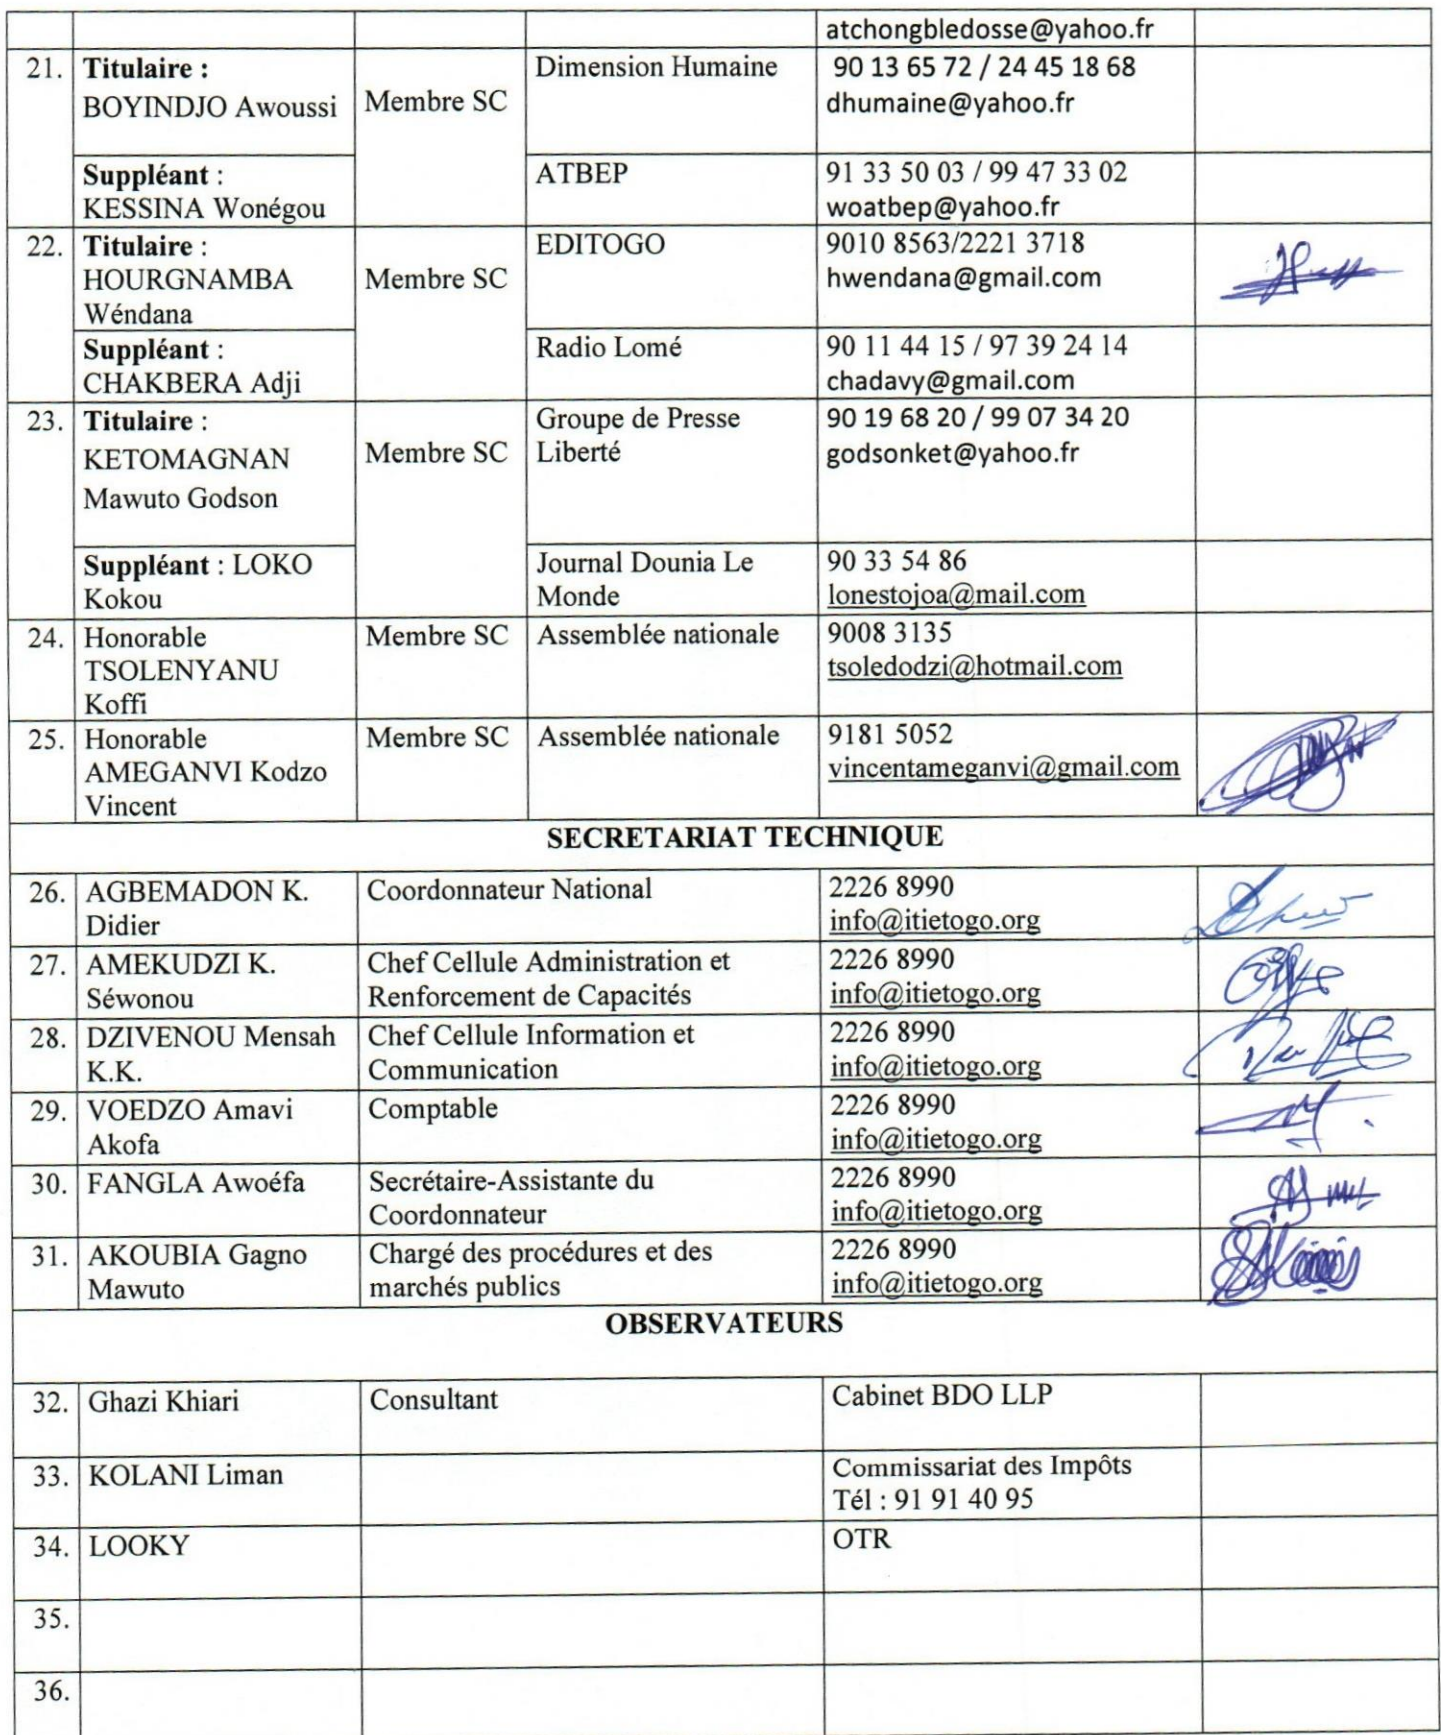 atchongbledosse@yahoo.fr
21. Titulaire :
BOYINDJO Awoussi
Membre SC
Dimension Humaine
90 13 65 72 / 24 45 18 68
dhumaine@yahoo.fr
Suppléant :
KESSINA Wonégou
ATBEP
91 33 50 03 / 99 47 33 02
woatbep@yahoo.fr
22. Titulaire :
HOURGNAMBA
Wéndana
Membre SC
EDITOGO
9010 8563/2221 3718
hwendana@gmail.com
Suppléant :
CHAKBERA Adji
Radio Lomé
90 11 44 15 / 97 39 24 14
chadavy@gmail.com
23. Titulaire :
KETOMAGNAN
Mawuto Godson
Membre SC
Groupe de Presse
Liberté
90 19 68 20 / 99 07 34 20
godsonket@yahoo.fr
Suppléant : LOKO
Kokou
Journal Dounia Le
Monde
90 33 54 86
lonestojoa@mail.com
24. Honorable
TSOLENYANU
Koffi
Membre SC
Assemblée nationale
9008 3135
tsoledodzi@hotmail.com
25. Honorable
AMEGANVI Kodzo
Vincent
Membre SC
Assemblée nationale
9181 5052
vincentameganvi@gmail.com
SECRETARIAT TECHNIQUE
26. AGBEMADON K.
Didier
Coordonnateur National
2226 8990
info@itietogo.org
27. AMEKUDZI K.
Séwonou
Chef Cellule Administration et
Renforcement de Capacités
2226 8990
info@itietogo.org
28. DZIVENOU Mensah
K.K.
Chef Cellule Information et
Communication
2226 8990
info@itietogo.org
29. VOEDZO Amavi
Akofa
Comptable
2226 8990
info@itietogo.org
30. FANGLA Awoéfa
Secrétaire-Assistante du
Coordonnateur
2226 8990
info@itietogo.org
31. AKOUBIA Gagno
Mawuto
Chargé des procédures et des
marchés publics
2226 8990
info@itietogo.org
OBSERVATEURS
32. Ghazi Khiari
Consultant
Cabinet BDO LLP
33. KOLANI Liman
Commissariat des Impôts
Tél : 91 91 40 95
34. LOOKY
OTR
35.
36.